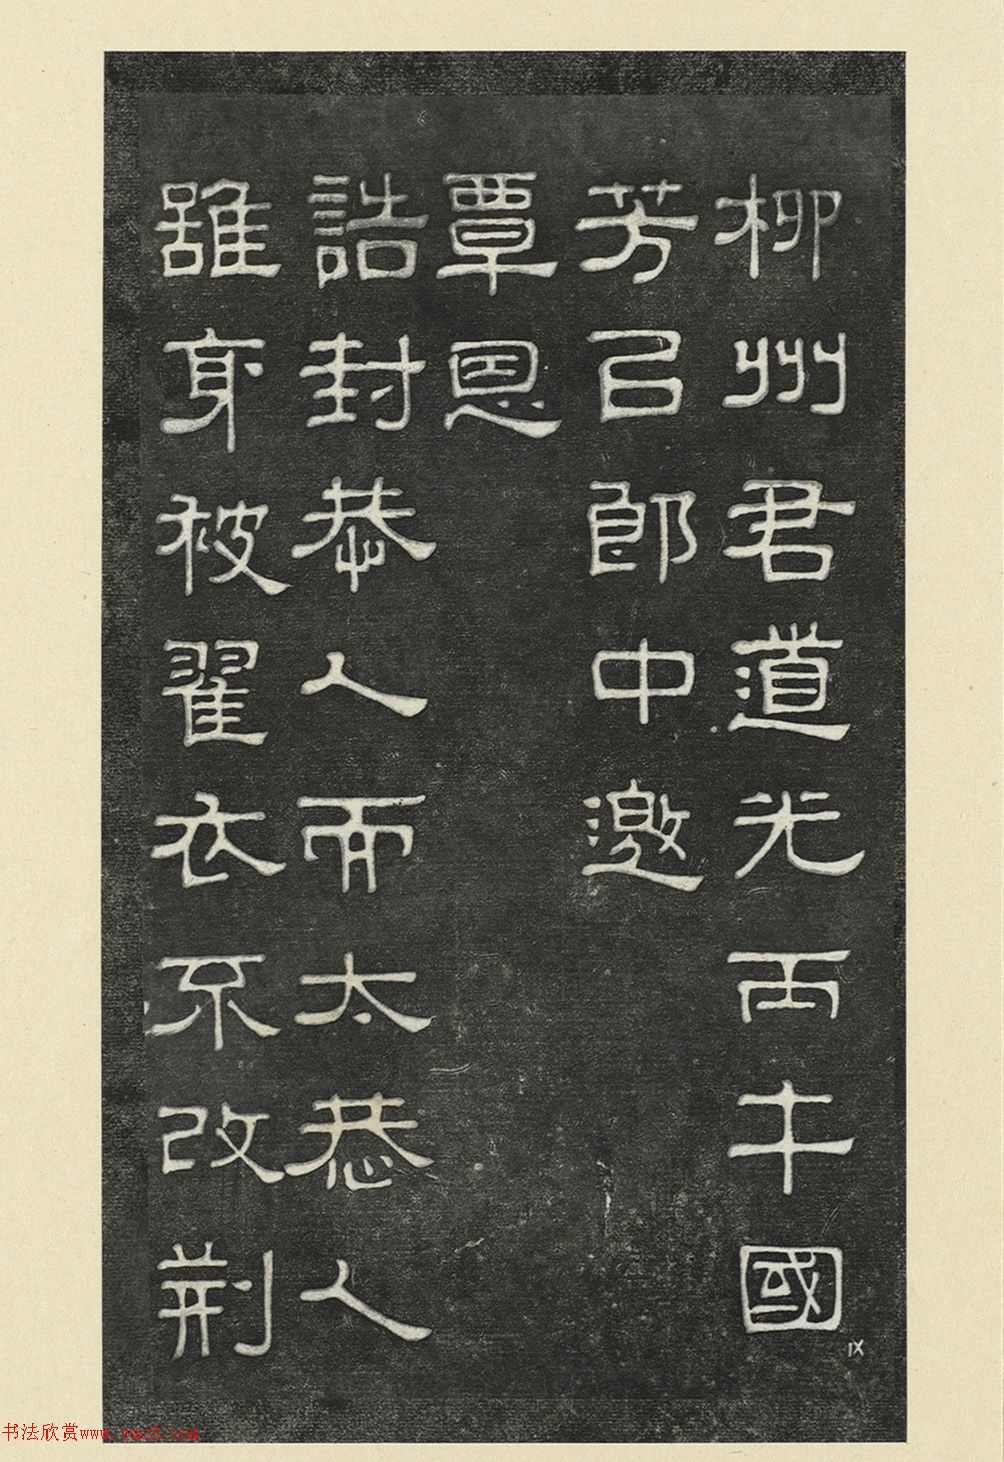 柳州君道光丙午國
芳以郎中邀
覃恩
誥封恭人而太恭人
雖身被翟衣不改荆
书法欣赏www.